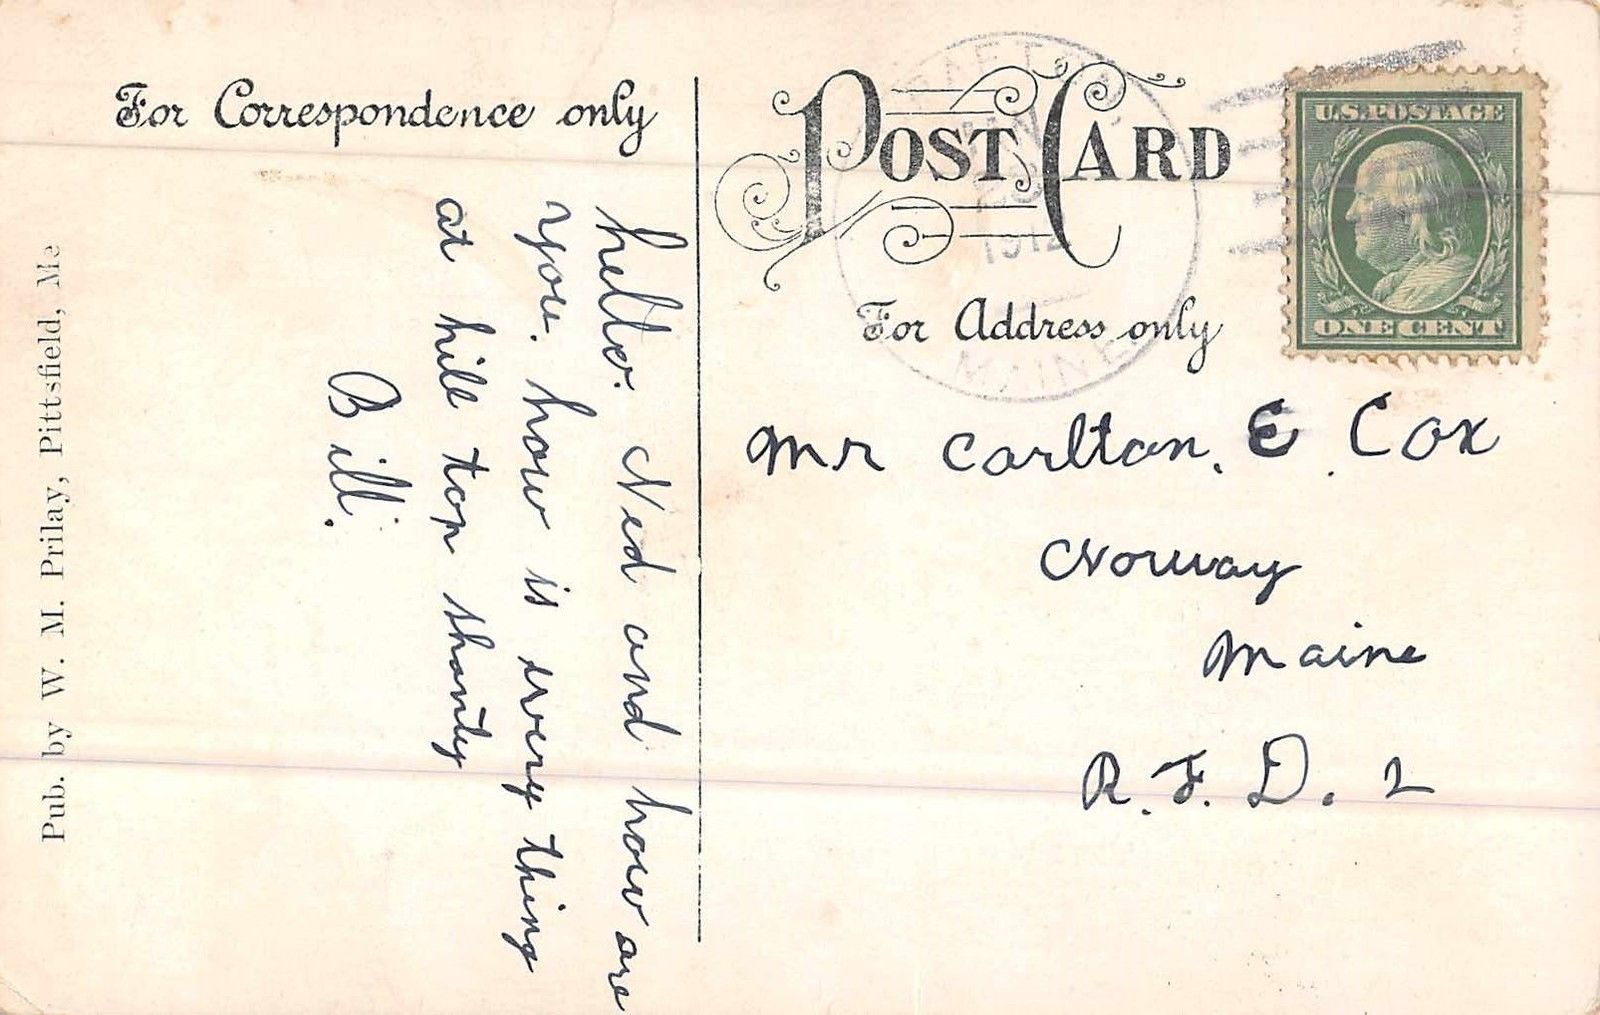 For Correspondence only
POST CARD
For Address only
U.S. POSTAGE
ONE CENT
1912
MAINE
hello. Ned and how are
you. how is every thing
at hill top shanty
Bill.
Mr Carlton. E. Cox
Norway
Maine
R. F. D. 2
Pub. by W. M. Prilay, Pittsfield, Me